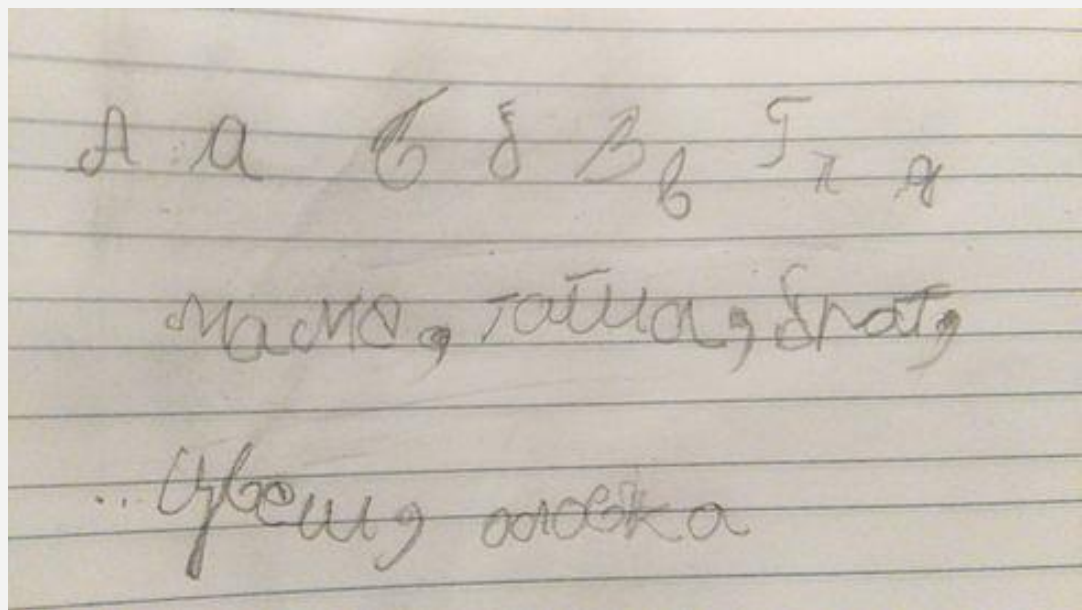 А а Б б В в Г г я
мама, тата, брат,
.. Цвеш, оловка